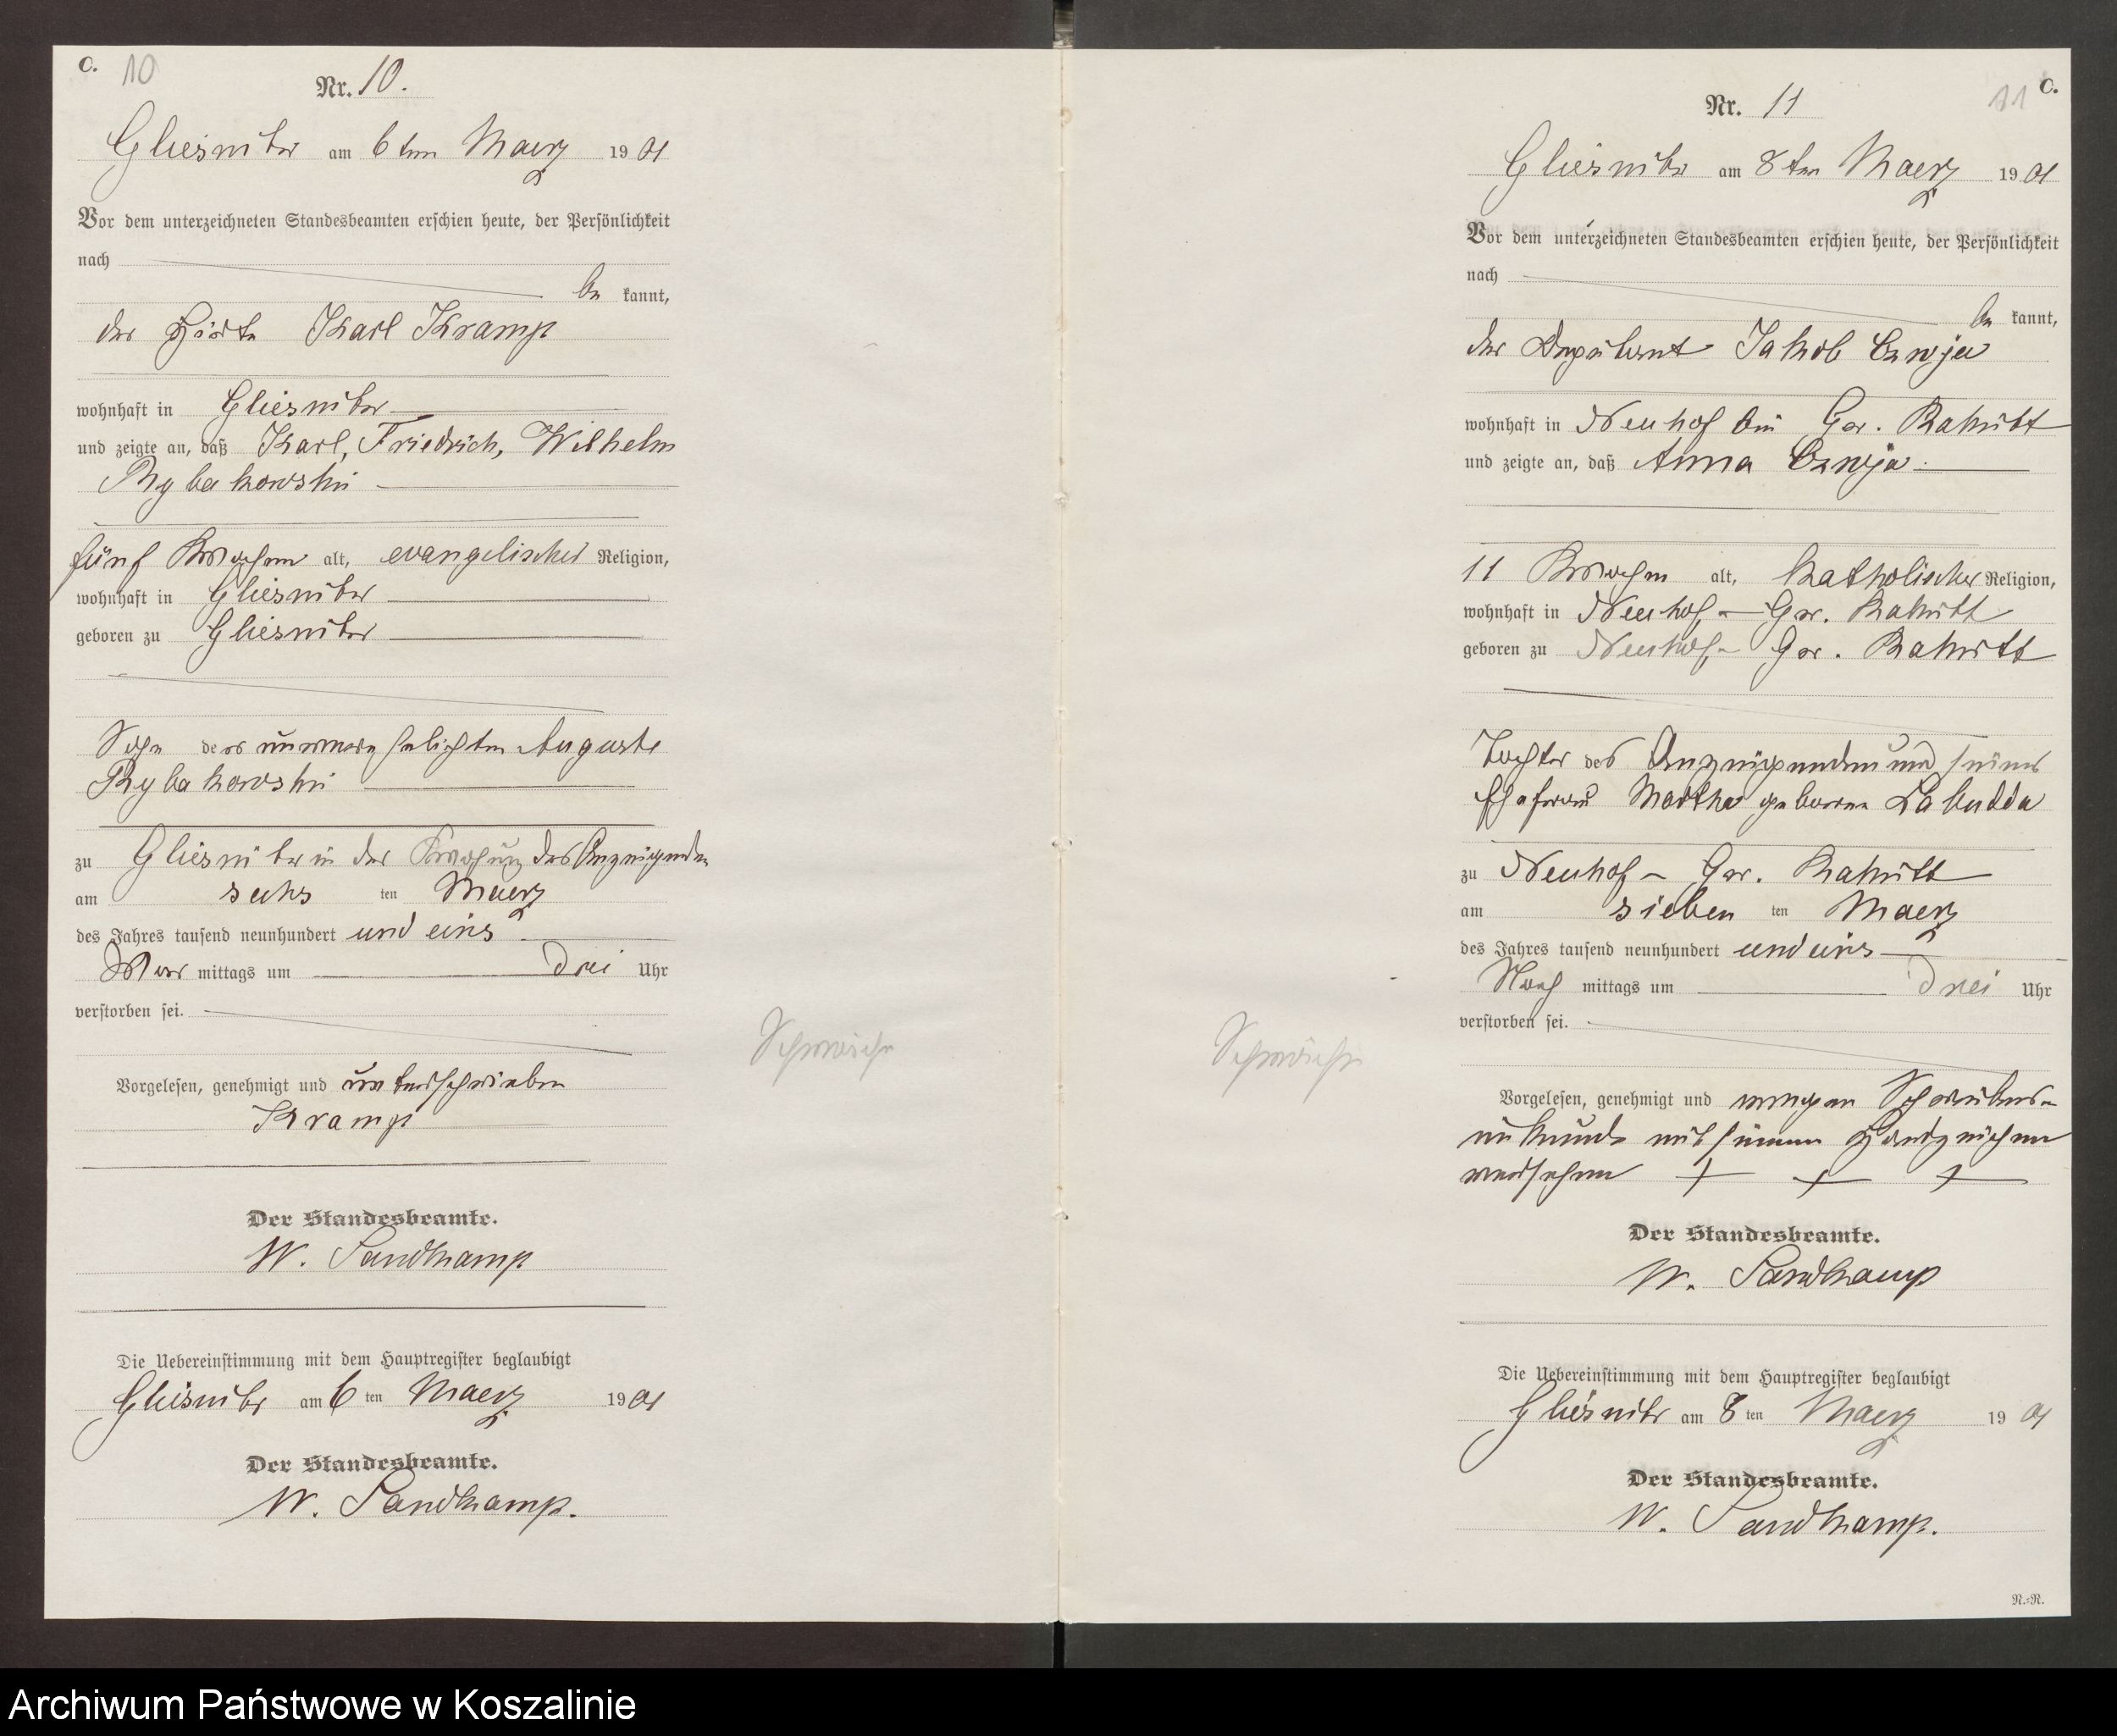 C. 10
Nr. 10.
Gliesnitz am 6ten Maerz 1901
Vor dem unterzeichneten Standesbeamten erschien heute, der Persönlichkeit
nach
be kannt,
der Hirte Karl Kramp
wohnhaft in Gliesnitz
und zeigte an, daß Karl, Friedrich, Wilhelm
Rybakowski
fünf Wochen alt, evangelischer Religion,
wohnhaft in Gliesnitz
geboren zu Gliesnitz
Sohn der unverehelichten Auguste
Rybakowski
zu Gliesnitz in der Wohnung des Anzeigenden
am sechs ten Maerz
des Jahres tausend neunhundert und eins
Vor mittags um drei Uhr
verstorben sei.
Schwäche
Vorgelesen, genehmigt und unterschrieben
Kramp
Der Standesbeamte.
W. Sandkamp
Die Uebereinstimmung mit dem Hauptregister beglaubigt
Gliesnitz am 6 ten Maerz 1901
Der Standesbeamte.
W. Sandkamp.
11 C.
Nr. 11
Gliesnitz am 8ten Maerz 1901
Vor dem unterzeichneten Standesbeamten erschien heute, der Persönlichkeit
nach
be kannt,
der Deputant Jakob
wohnhaft in Neuhof bei Gr. Rakitt
und zeigte an, daß Anna
11 Wochen alt, katholischer Religion,
wohnhaft in Neuhof - Gr. Rakitt
geboren zu Neuhof - Gr. Rakitt
Tochter des Anzeigenden und seiner
Ehefrau Martha geborene Labudda
zu Neuhof - Gr. Rakitt
am sieben ten Maerz
des Jahres tausend neunhundert und eins
Nach mittags um drei Uhr
verstorben sei.
Schwäche
Vorgelesen, genehmigt und wegen Schreibens-
unkunde mit seinem Handzeichen
versehen + + +
Der Standesbeamte.
W. Sandkamp
Die Uebereinstimmung mit dem Hauptregister beglaubigt
Gliesnitz am 8 ten Maerz 1901
Der Standesbeamte.
W. Sandkamp.
N.-N.
Archiwum Państwowe w Koszalinie